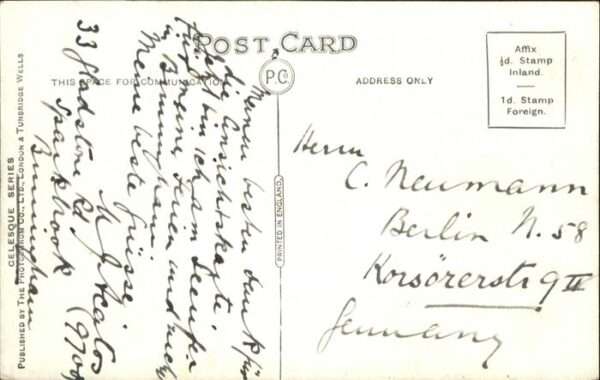 POST CARD
THIS SPACE FOR COMMUNICATION
P.C.
ADDRESS ONLY
Affix
½d. Stamp
Inland.
1d. Stamp
Foreign.
CELESQUE SERIES
PUBLISHED BY THE PHOTOCHROM CO., LTD., LONDON & TUNBRIDGE WELLS
PRINTED IN ENGLAND.
Meinen besten Dank für
die Ansichtskarte
bin ich am
in Birmingham
Meine beste Grüsse
33 Gladstone Rd
Sparkbrook
Birmingham
Herrn
C. Neumann
Berlin N. 58
Korsörerstr 9 III
Germany